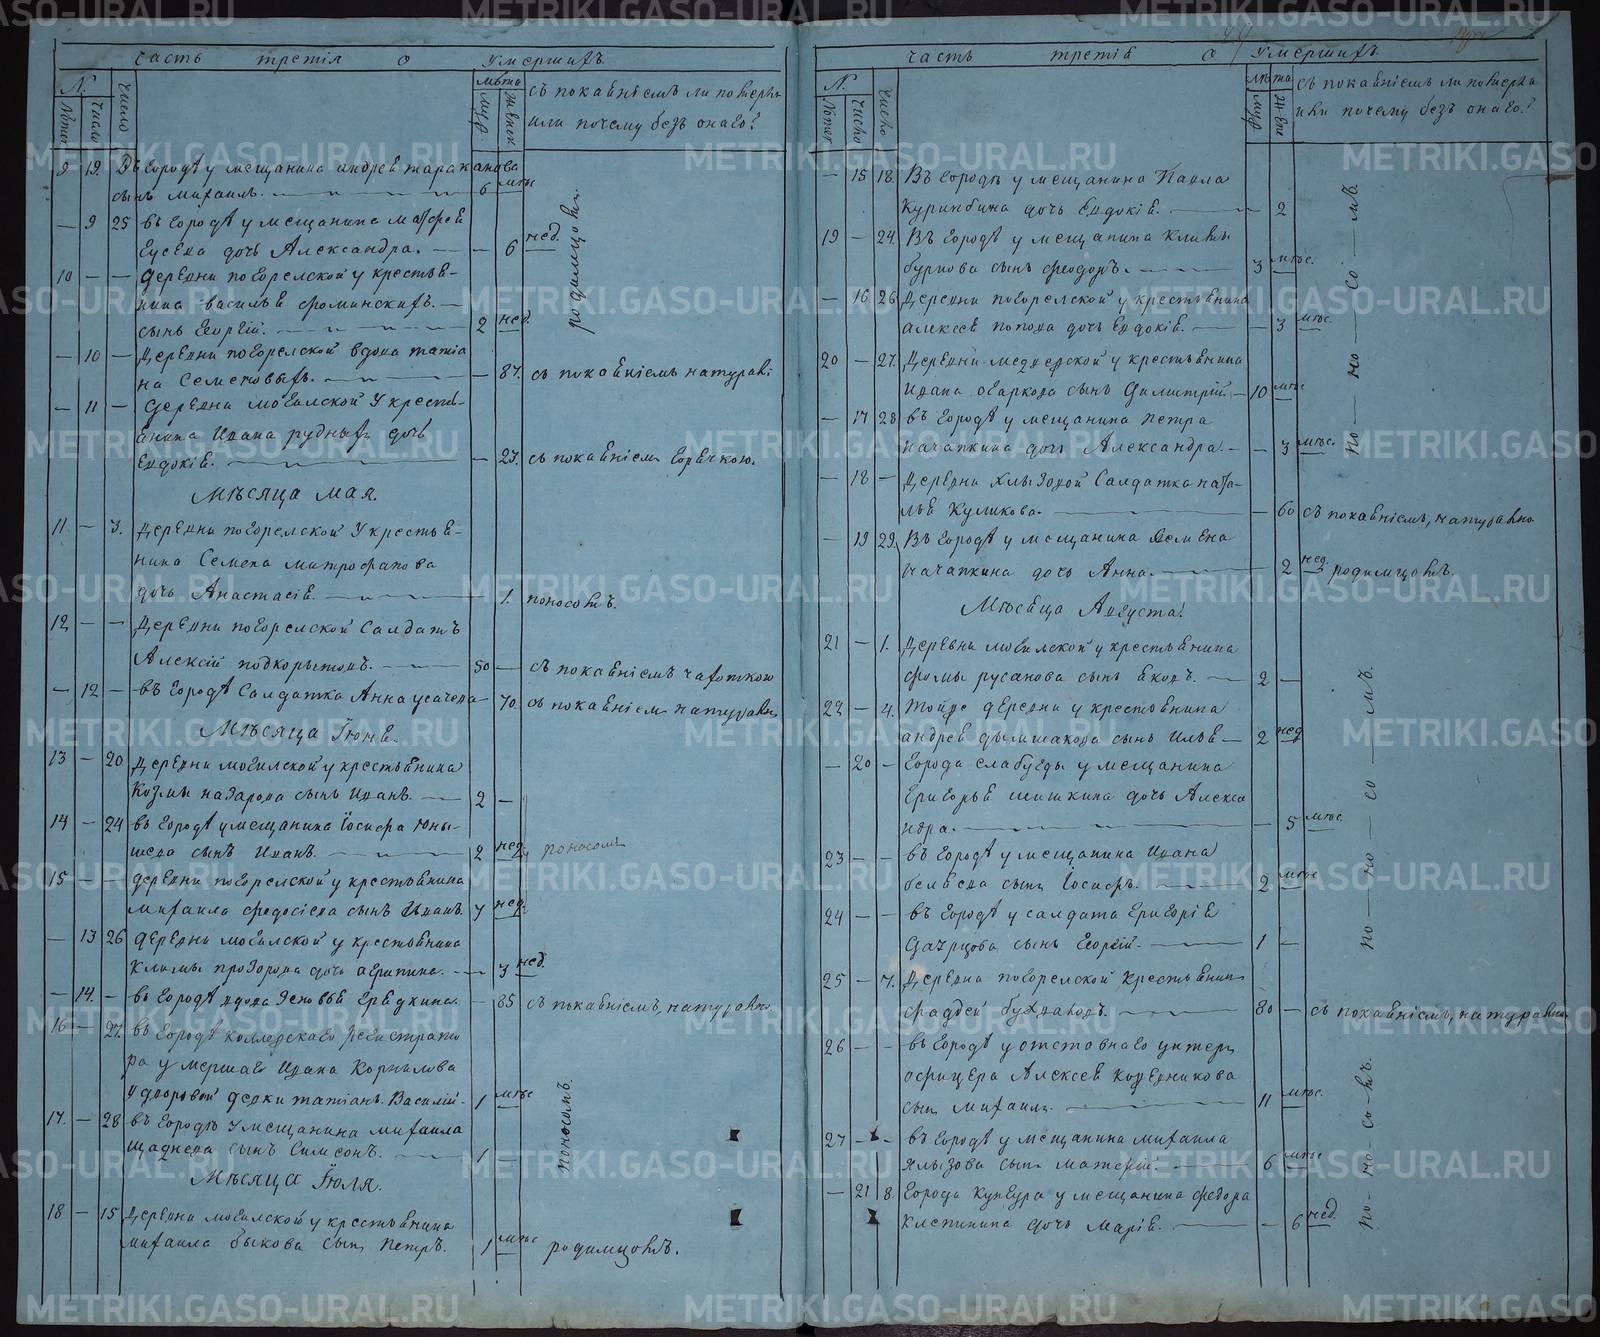 часть третія о умершихъ
№. число лѣта съ покаяніемъ ли померли
или почему безъ онаго?
9 19. Въ городѣ у мещанина андрея тараканова
сынъ михаилъ. 6 мѣся
— 9 25 въ городѣ у мещанина матфея
гусева дочь Александра. — 6 нед.
родимцомъ.
10 — — деревни погорелской у крестья-
нина василья фоминскихъ.
сынъ георгій. 2 нед.
— 10 — деревни погорелской вдова татіа
на Семеновыхъ. — 87. съ покаяніемъ натурал:
— 11 — деревни могилской у кресть-
янина ивана рудныхъ дочь
евдокія. — 27. съ покаяніем горячкою.
Мѣсяца мая.
11 — 3. деревни погорелской у крестья-
нина Семена митрофанова
дочь Анастасія. 1. поносомъ.
12 — — деревни погорелской Салдатъ
Алексій подкорытовъ. 50 — съ покаяніемъ чахоткою
— 12 — въ городѣ Салдатка Анна усачева — 70. съ покаяніем натурално
Мѣсяца Іюня.
13 — 20 деревни могилской у крестьянина
козмы назарова сынъ иванъ. 2 —
14 — 24 въ городѣ у мещанина іосифа юны-
шева сынъ иванъ. 2 нед. поносомъ
15 — — деревни погорелской у крестьянина
михаила федосіева сынъ иванъ. 7 нед.
— 13 26 деревни могилской у крестьянина
климы прозорова дочь агрипина. — 3 нед.
— 14. — въ городѣ вдова зеновья гредкина. — 85 съ покаяніемъ, натурално.
16 — 27. въ городѣ коллежскаго регистрато
ра умершаго ивана корнилова
у дворовой девки татіаны Василій. 1 мѣся
17. — 28 въ городѣ у мещанина михаила
щаднева сынъ Симеонъ. 1 —
поносомъ.
Мѣсяца Іюля.
18 — 15 деревни могилской у крестьянина
михаила быкова сынъ петръ. 1 мѣся родимцомъ.
часть третія о умершихъ
№. число лѣта съ покаяніемъ ли померли
или почему безъ онаго?
— 15 18. въ городѣ у мещанина павла
курикбина дочь евдокія. — 2
19 — 24. въ городѣ у мещанина климы
буркова сынъ феодоръ. 3 мѣс.
— 16 26 деревни погорелской у крестьянина
алексея попова дочь евдокія. — 3 мѣс.
20 — 27. деревни медведской у крестьянина
ивана огаркова сынъ димитрій. 10 мѣс
— 17 28 въ городѣ у мещанина петра
качапкина дочь Александра. — 3 мѣс.
по — но — со — мъ.
— 18 — деревни хлызовой Салдатка ната-
лья куликова. — 60 съ покаяніемъ, натурално
— 19 29. въ городѣ у мещанина семена
качапкина дочь Анна. — 2 нед. родимцомъ.
Мѣсяца Августа.
21 — 1. деревни могилской у крестьянина
фомы русанова сынъ яковъ. 2 —
22 — 4. тойже деревни у крестьянина
андрея дымшакова сынъ илья 2 нед
— 20 — города слабуеды у мещанина
григорья шишкина дочь Алекса
ндра. — 5 мѣс
23 — — въ городѣ у мещанина ивана
беляева сынъ іосифъ. 2 мѣс
24 — — въ городѣ у салдата григорія
сынъ георгій. 1 —
по — но — со — мъ.
25 — 7. деревни погорелской крестьянин
фаддей бухваловъ. 80 — съ покаяніемъ, натурално
26 — — въ городѣ у отставнаго унтеръ
офицера Алексея кожевникова
сынъ михаилъ. 11 мѣс.
27 — — въ городѣ у мещанина михаила
хлызова сынъ матфей. 6 мѣс
— 21 8. города кунгура у мещанина федора
клепинина дочь марія. — 6 нед.
по-но-со-мъ.
METRIKI.GASO-URAL.RU